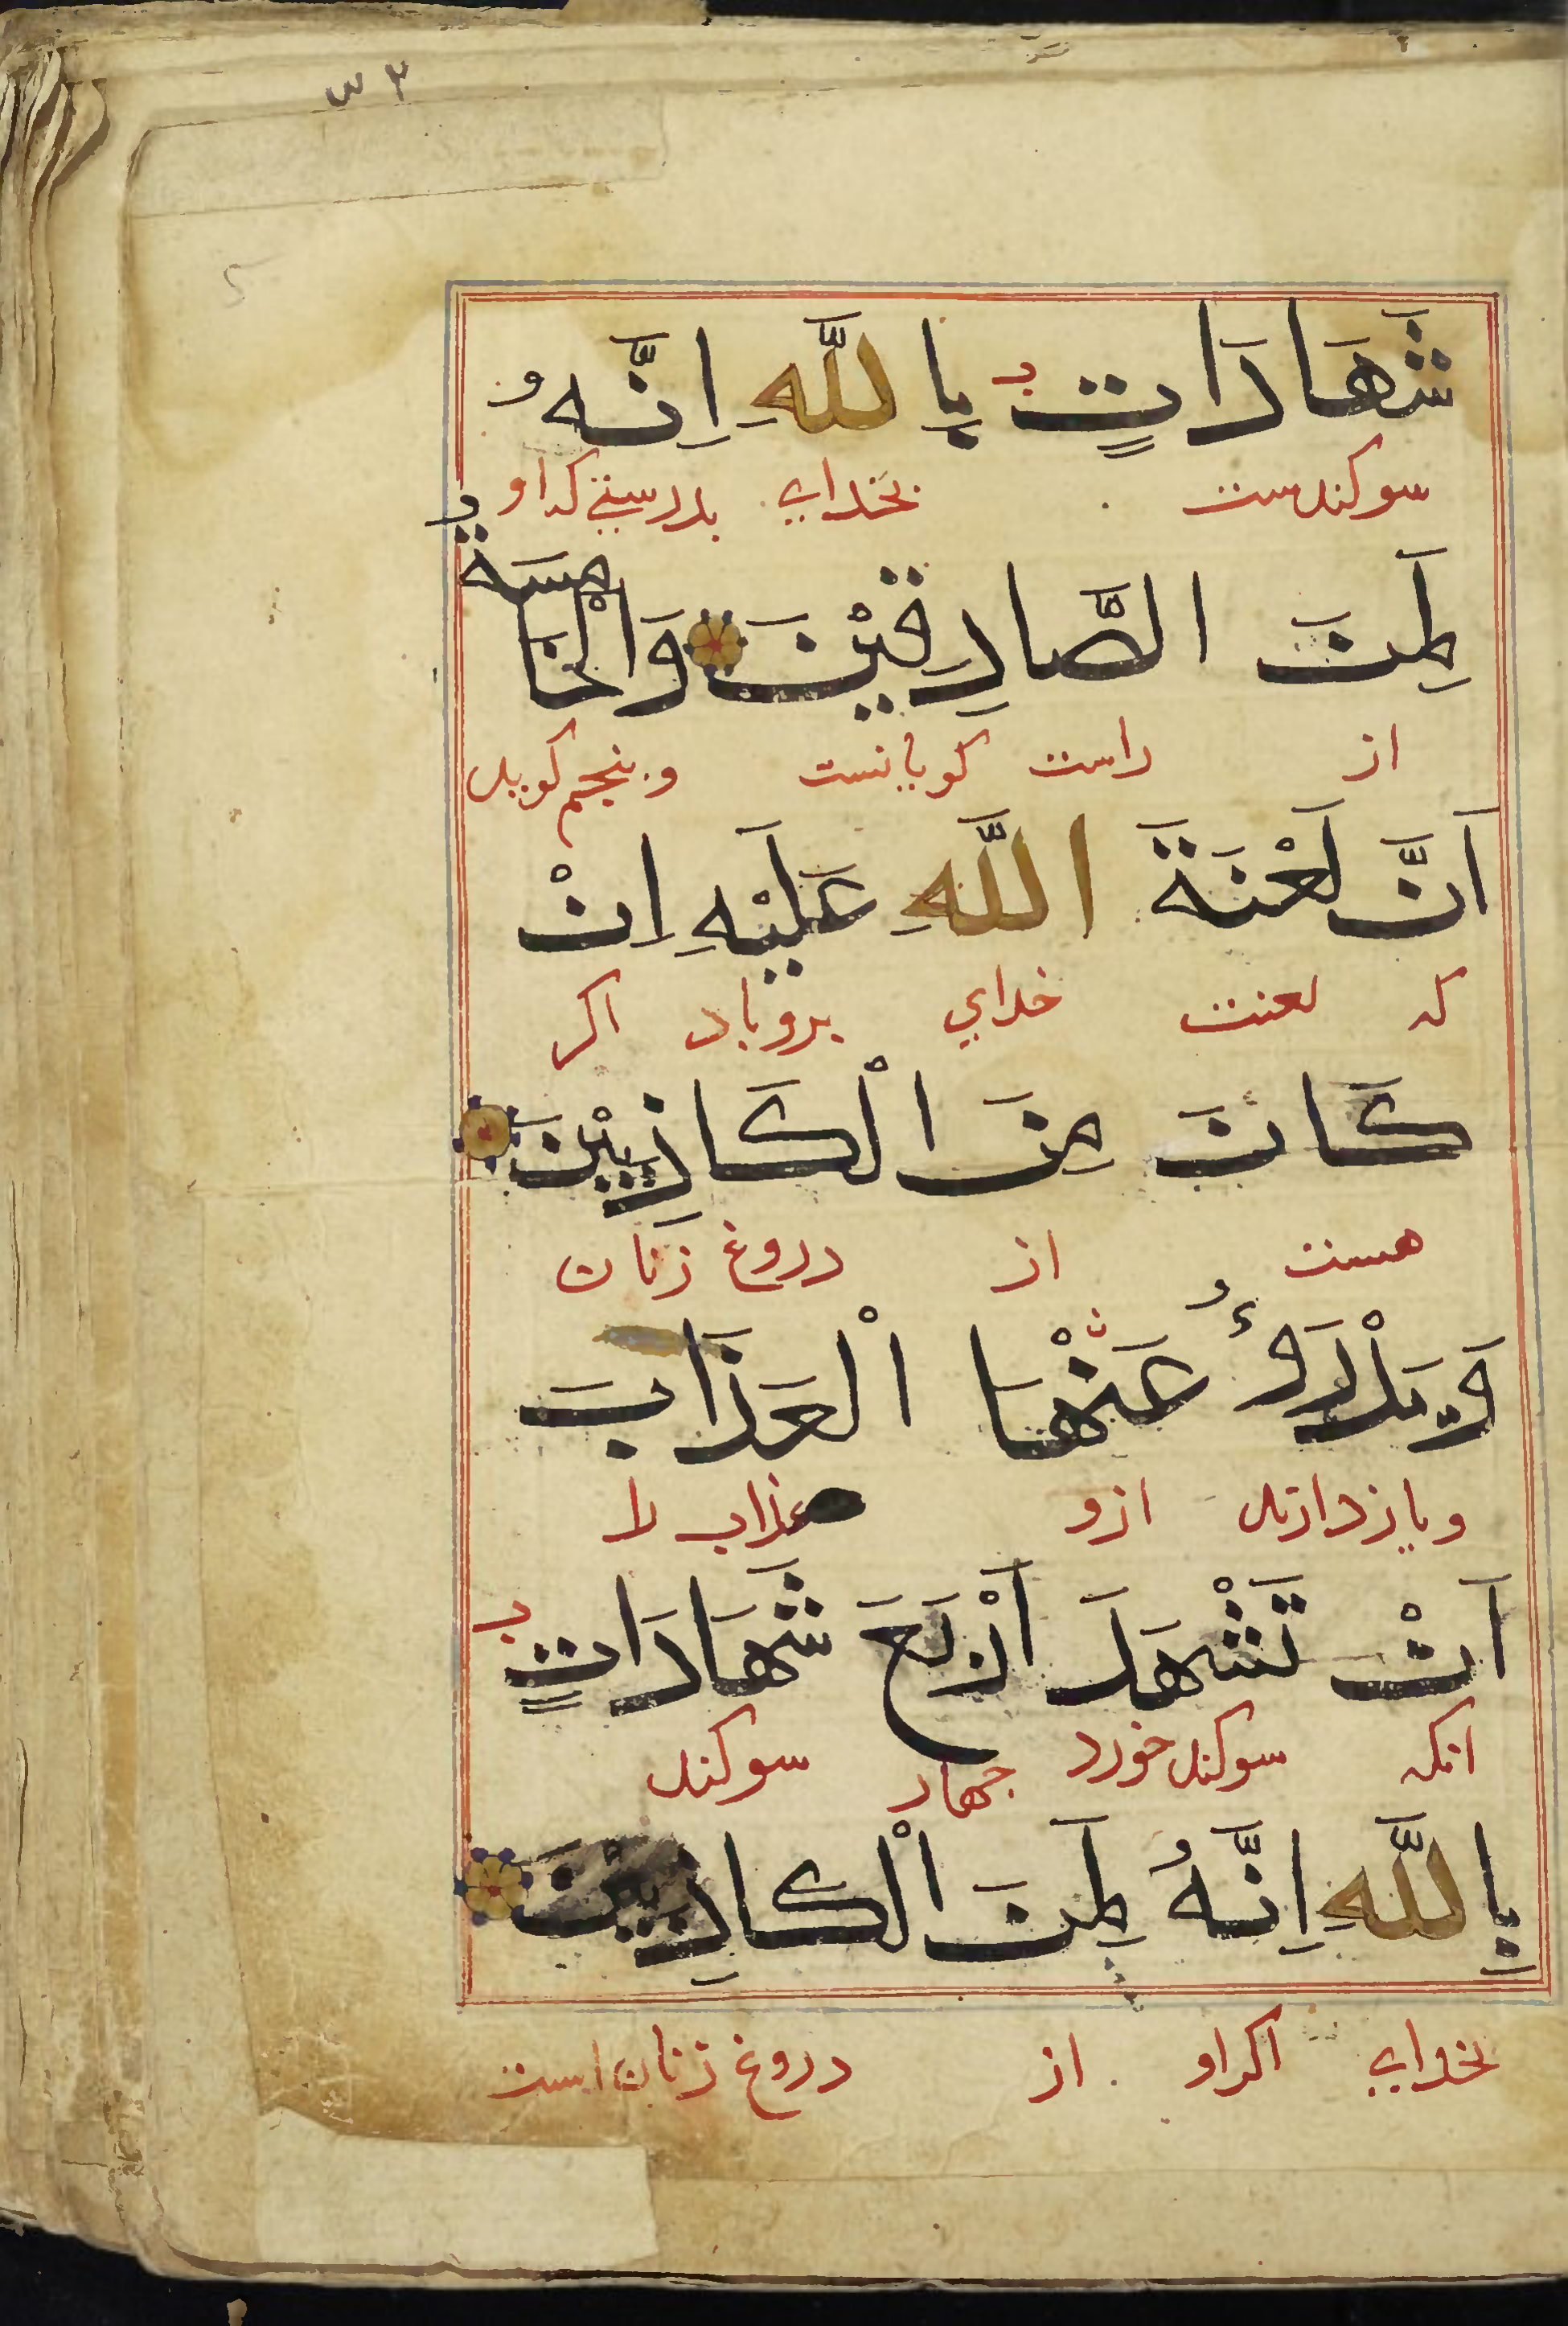 ۳ س
شَهَادَاتٍ بِاللَّهِ اِنَّهُ
سوكندست بخدای بدرستی كه او
لَمِنَ الصَّادِقِيْنَ وَالْخَامِسَةُ
از راست كویانست و پنجم كوید
اَنَّ لَعْنَةَ اللَّهِ عَلَيْهِ اِنْ
كه لعنت خدای برو باد اكر
كَانَ مِنَ الْكَاذِبِيْنَ
هست از دروغ زنان
وَيَدْرَؤُ عَنْهَا الْعَذَابَ
و باز دارند ازو عذاب را
اَنْ تَشْهَدَ اَرْبَعَ شَهَادَاتٍ
انکه سوكند خورد جهار سوكند
بِاللَّهِ اِنَّهُ لَمِنَ الْكَاذِبِيْنَ
بخدای اكر او از دروغ زنان است